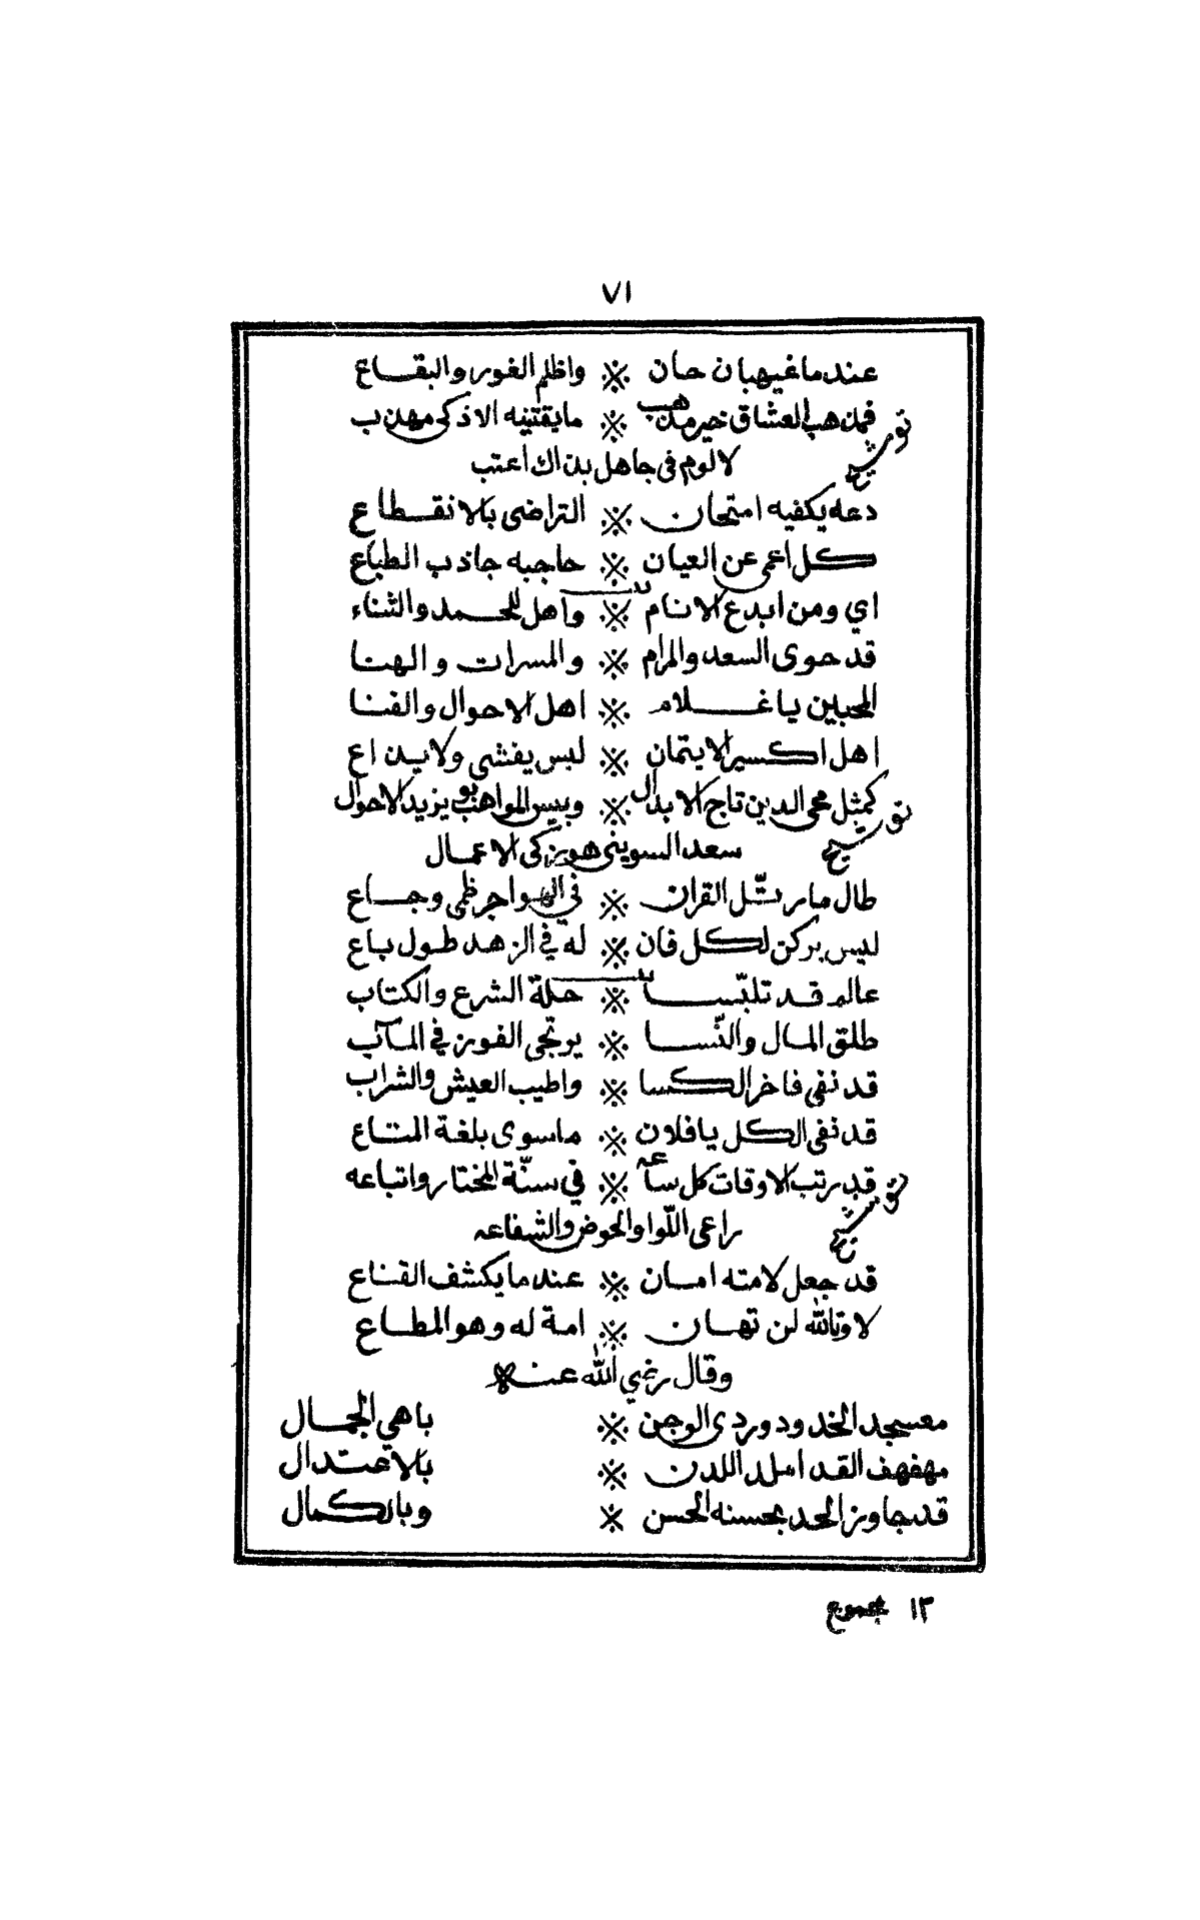 ٧١
عندماغيهبان حان ※ واظلم الغور والبقاع
فمذهب العشاق خير مذهب ※ مايقتنيه الاذكى مهذب
توشيح
لالوم فى جاهل بذاك اعتب
دعه يكفيه امتحان ※ التراضى بالانقطاع
كل اعمى عن العيان ※ حاجبه جاذب الطباع
بيت
اي ومن ابدع الانام ※ واهل للحمد والثناء
قد حوى السعد والمرام ※ والمسرات والهنا
المحبين ياغلام ※ اهل الاحوال والفنا
اهل اكسير الايتمان ※ ليس يفشى ولايذاع
كمثل محى الدين تاج الابدال ※ وبيس المواهب بو يزيد الاحوال
توشيح
سعد السوينى هو زكى الاعمال
طال مارتّل القران ※ في الهواجر ظمى وجاع
ليس يركن لكل فان ※ له في الزهد طول باع
بيت
عالم قد تلبّسا ※ حلة الشرع والكتاب
طلق المال والنّسا ※ يرتجى الفوز في المآب
قد نفى فاخر الكسا ※ واطيب العيش والشراب
قد نفى الكل يافلان ※ ماسوى بلغة المتاع
قد رتب الاوقات كل ساعه ※ في سنّة المختار واتباعه
توشيح
راعى اللّوا والحوض والشفاعه
قد جعل لامته امان ※ عندمايكشف القناع
لاوتالله لن تهان ※ امة له وهو المطاع
وقال رضي الله عنه
معسجد الخدود وردى الوجن ※ باهي الجمال
مهفهف القد املد اللدن ※ بالاعتدال
قدجاوز الحد بحسنه الحسن ※ وبالكمال
١٣ مجموع